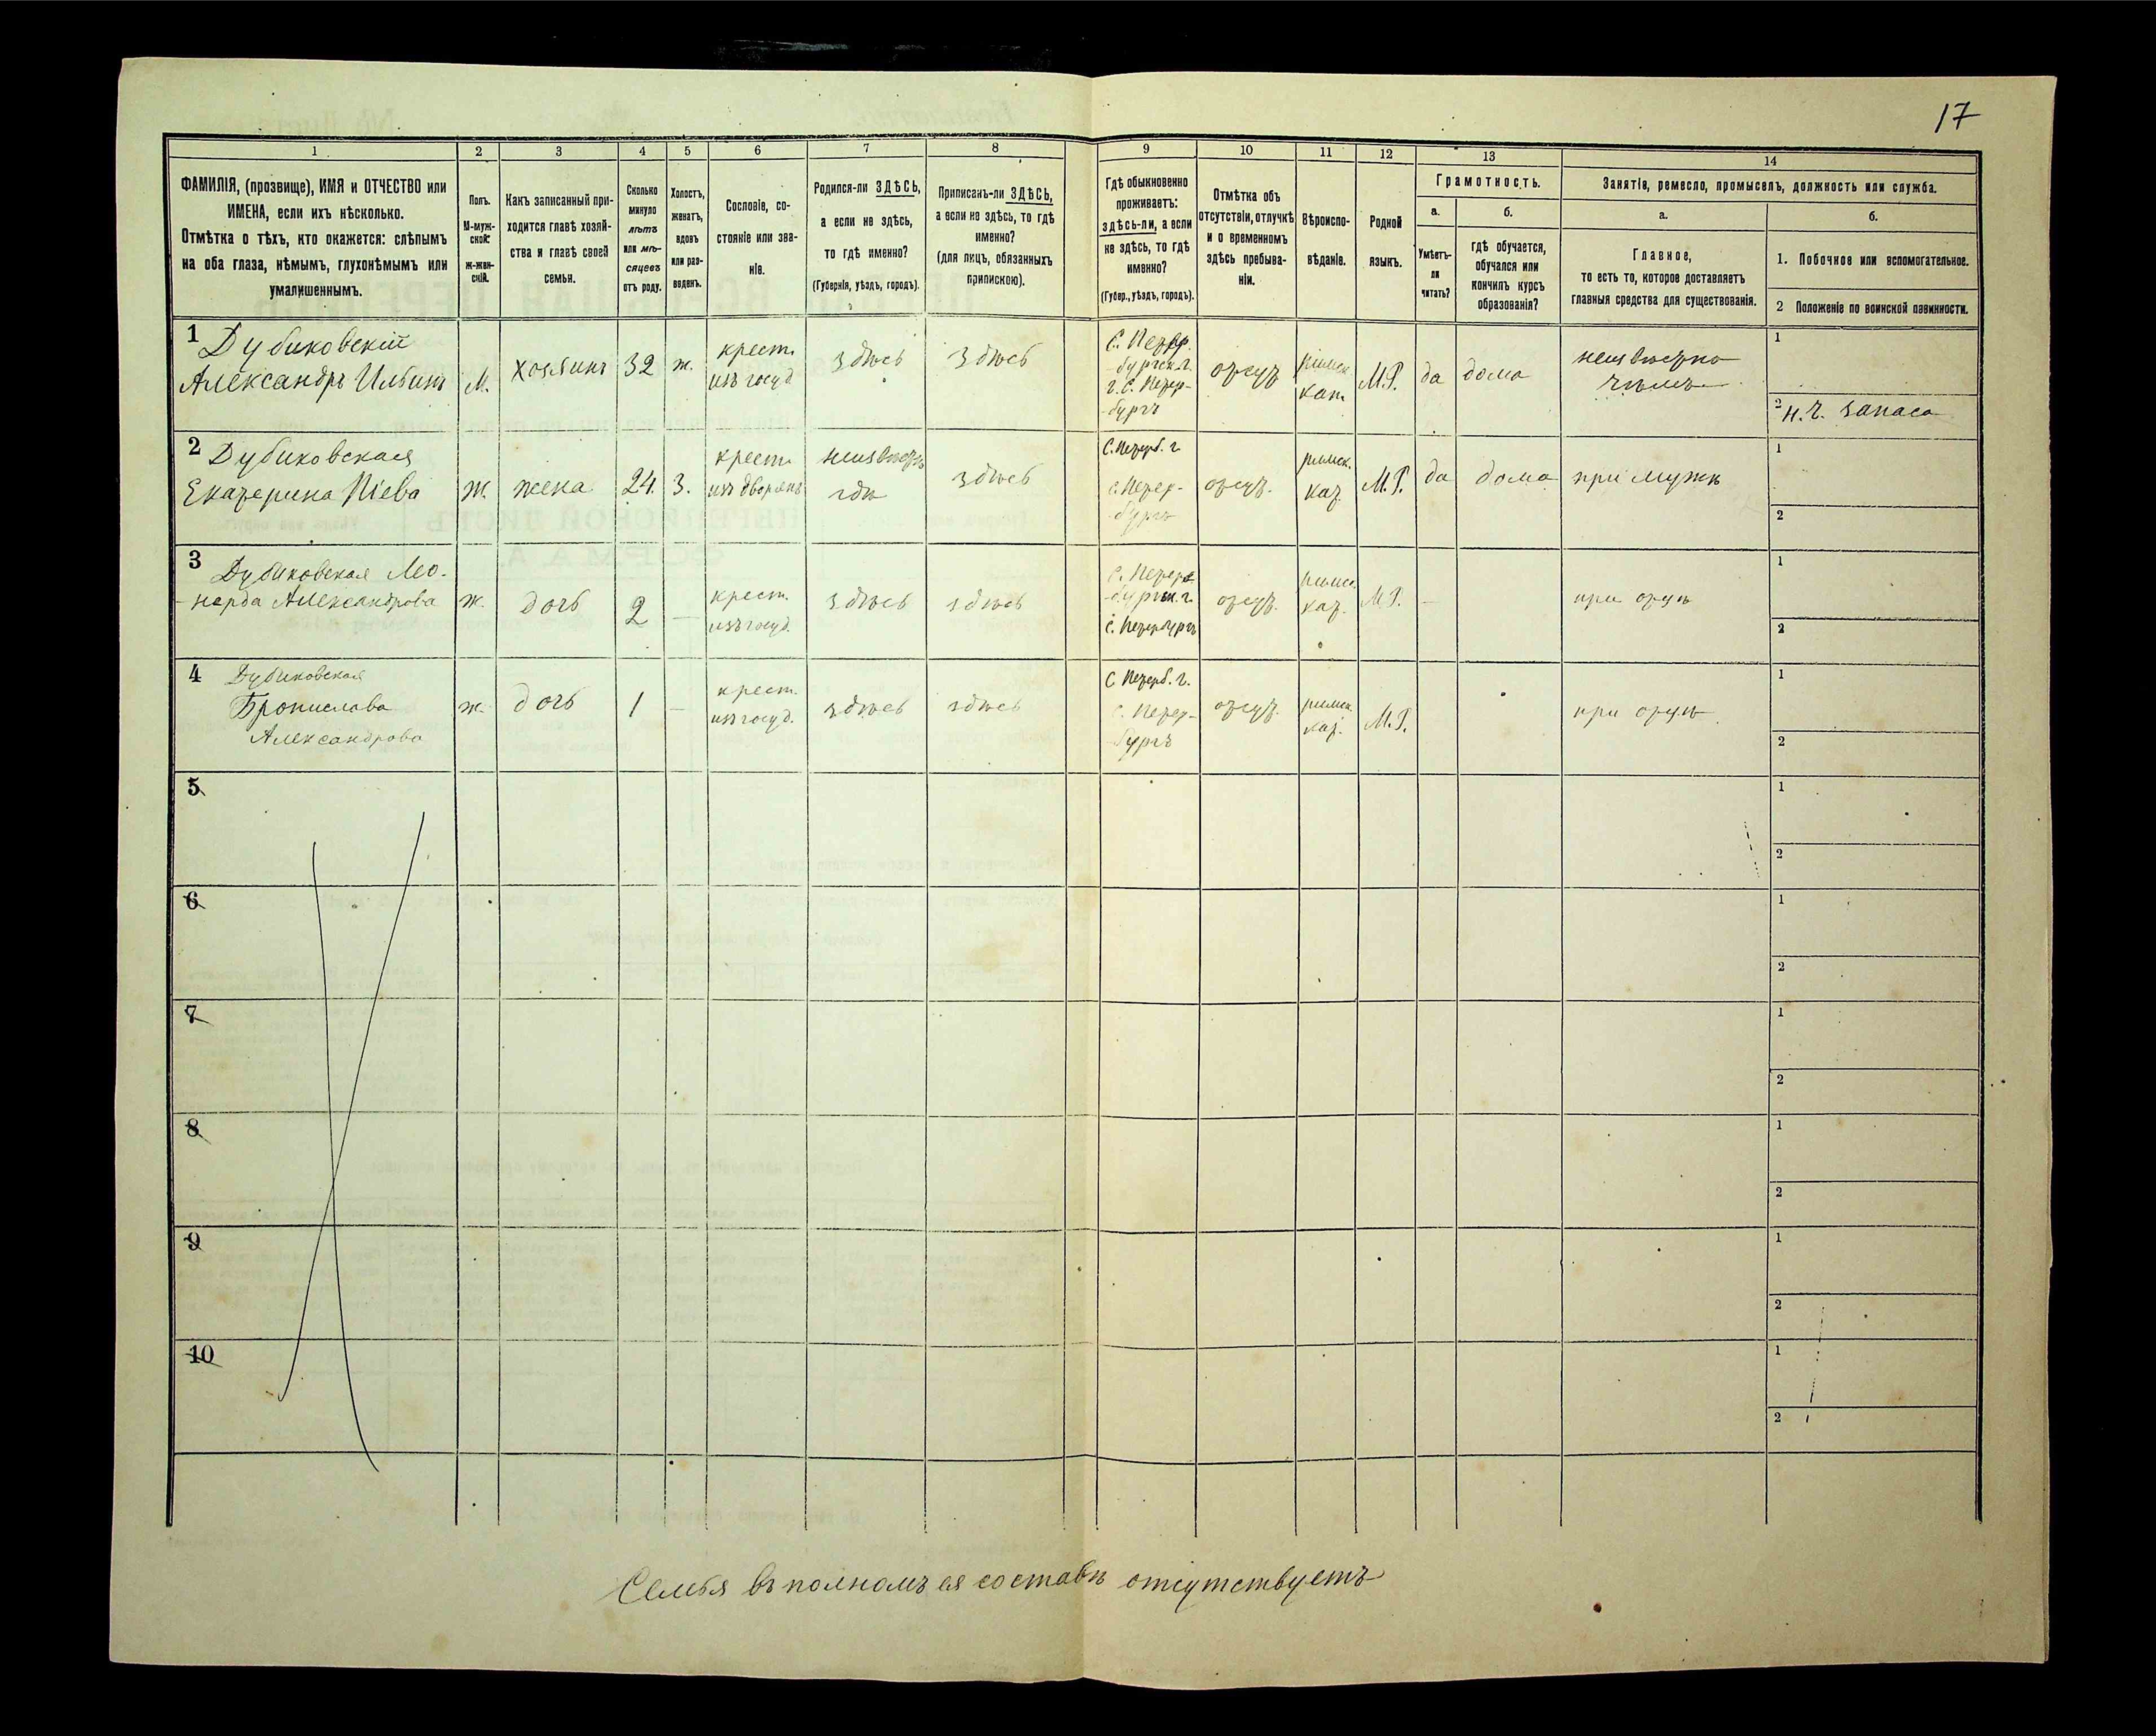 17
1
2
3
4
5
6
7
8
9
10
11
12
13
14
ФАМИЛІЯ, (прозвище), ИМЯ и ОТЧЕСТВО или
ИМЕНА, если ихъ нѣсколько.
Отмѣтка о тѣхъ, кто окажется: слѣпымъ
на оба глаза, нѣмымъ, глухонѣмымъ или
умалишеннымъ.
Полъ.
М-муж-
ской:
ж-жен-
скій.
Какъ записанный при-
ходится главѣ хозяй-
ства и главѣ своей
семьи.
Сколько
минуло
лѣтъ
или мѣ-
сяцевъ
отъ роду.
Холостъ,
женатъ,
вдовъ
или раз-
веденъ.
Сословіе, со-
стояніе или зва-
ніе.
Родился-ли ЗДѢСЬ,
а если не здѣсь,
то гдѣ именно?
(Губернія, уѣздъ, городъ).
Приписанъ-ли ЗДѢСЬ,
а если не здѣсь, то гдѣ
именно?
(для лицъ, обязанныхъ
припискою).
Гдѣ обыкновенно
проживаетъ:
здѣсь-ли, а если
не здѣсь, то гдѣ
именно?
(Губер., уѣздъ, городъ).
Отмѣтка объ
отсутствіи, отлучкѣ
и о временномъ
здѣсь пребыва-
ніи.
Вѣроиспо-
вѣданіе.
Родной
языкъ.
Грамотность.
а.
б.
Умѣетъ-
ли
читать?
гдѣ обучается,
обучался или
кончилъ курсъ
образованія?
Занятіе, ремесло, промыселъ, должность или служба.
а.
б.
Главное,
то есть то, которое доставляетъ
главныя средства для существованія.
1. Побочное или вспомогательное.
2 Положеніе по воинской повинности.
1 Дубиковскій
Александръ Ильинъ
М.
хозяинъ
32
ж.
крест.
изъ госуд.
здѣсь
здѣсь
С. Петер-
бургск. г.
г. С. Петер-
бургъ
отсут.
римск.
кат.
М.Р.
да
дома
неизвѣстно
чѣмъ
1
2 н. ч. запаса
2 Дубиковская
Екатерина Піева
ж.
жена
24.
З.
крест.
изъ дворянъ
неизвѣстн.
гдѣ
здѣсь
С. Петерб. г.
С. Петер-
бургъ
отсут.
римск.
кат.
М.Р.
да
дома
при мужѣ
1
2
3 Дубиковская Лео-
нарда Александрова
ж.
дочь
2
—
крест.
изъ госуд.
здѣсь
здѣсь
С. Петер-
бургск. г.
С. Петербургъ
отсут.
римск.
кат.
М.Р.
—
при отцѣ
1
2
4 Дубиковская
Бронислава
Александрова
ж.
дочь
1
—
крест.
изъ госуд.
здѣсь
здѣсь
С Петерб. г.
С. Петер-
бургъ
отсут.
римск.
кат.
М.Р.
при отцѣ
1
2
5
1
2
6
1
2
7
1
2
8
1
2
9
1
2
10
1
2
Семья въ полномъ ея составѣ отсутствуетъ